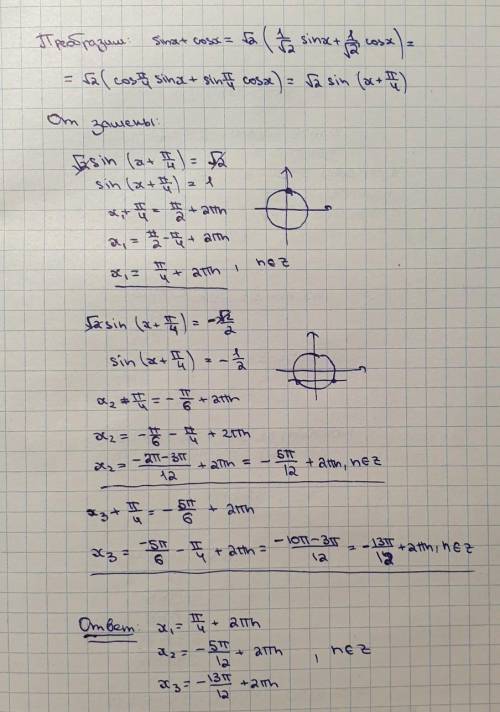 Преобразим: sinx + cosx = √2 (1/√2 sinx + 1/√2 cosx) =
= √2 (cos π/4 sinx + sin π/4 cosx) = √2 sin (x + π/4)
От замены:
√2 sin (x + π/4) = √2
sin (x + π/4) = 1
x₁ + π/4 = π/2 + 2πn
x₁ = π/2 - π/4 + 2πn
x₁ = π/4 + 2πn, n∈Z
√2 sin (x + π/4) = -√2/2
sin (x + π/4) = -1/2
x₂ + π/4 = -π/6 + 2πn
x₂ = -π/6 - π/4 + 2πn
x₂ = (-2π-3π)/12 + 2πn = -5π/12 + 2πn, n∈Z
x₃ + π/4 = -5π/6 + 2πn
x₃ = -5π/6 - π/4 + 2πn = (-10π-3π)/12 = -13π/12 + 2πn, n∈Z
Ответ: x₁ = π/4 + 2πn
x₂ = -5π/12 + 2πn, n∈Z
x₃ = -13π/12 + 2πn